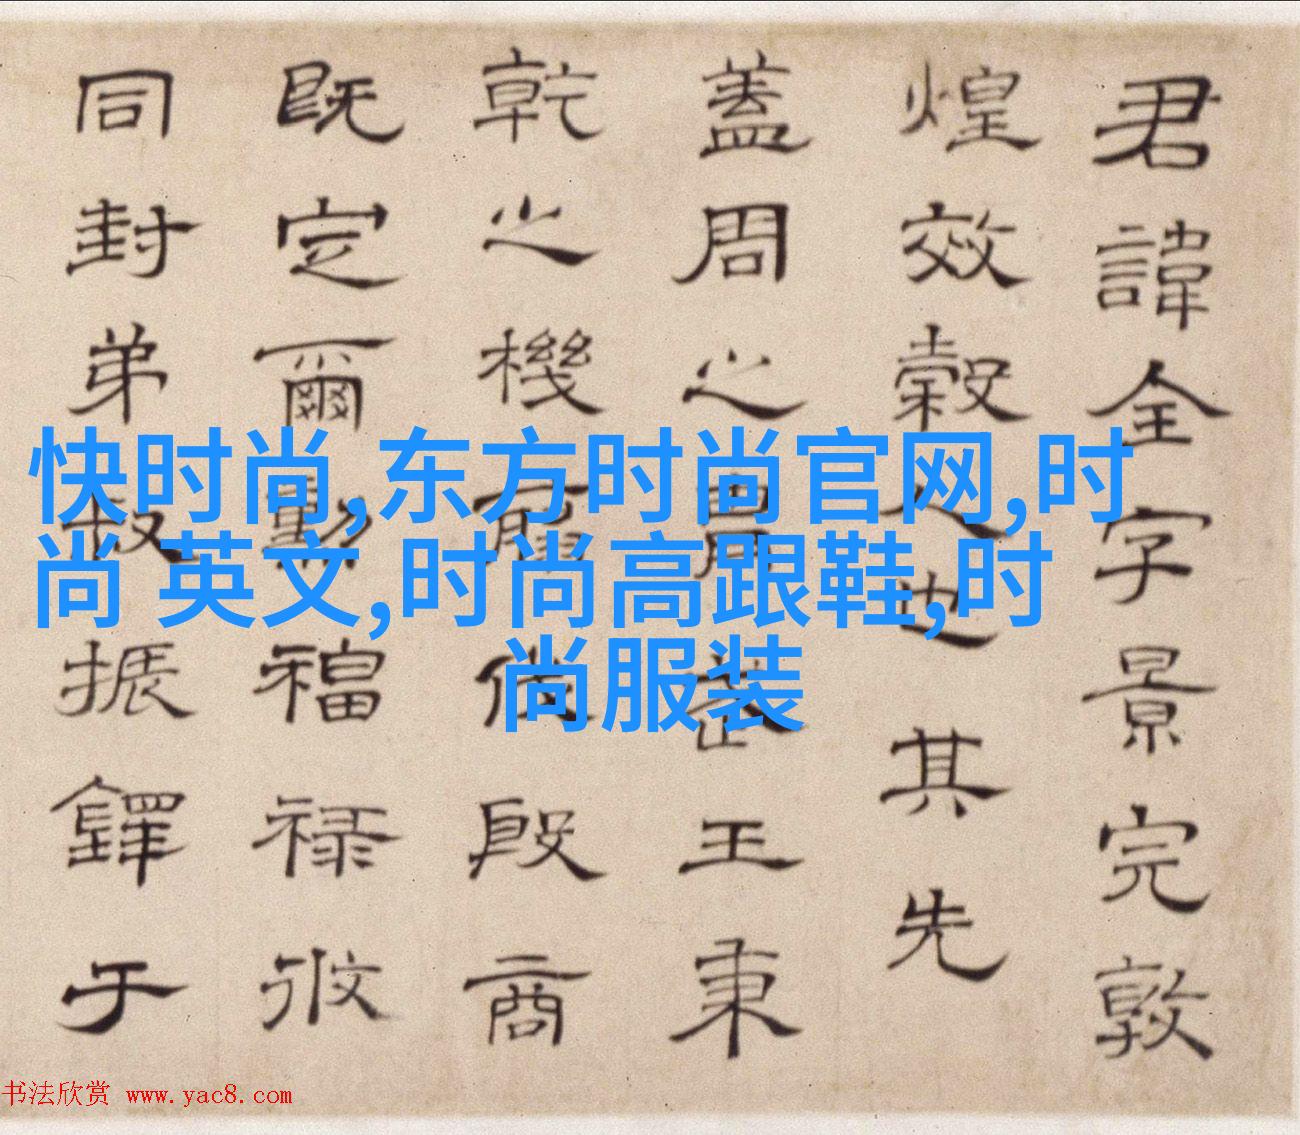 君諱全字景完敦
煌效穀人也其先
蓋周之胄武王秉
乾之機翦伐殷商
既定爾勳福祿攸
同封弟叔振鐸于
快时尚,东方时尚官网,时
尚 英文,时尚高跟鞋,时
尚服装
书法欣赏 www.yac8.com